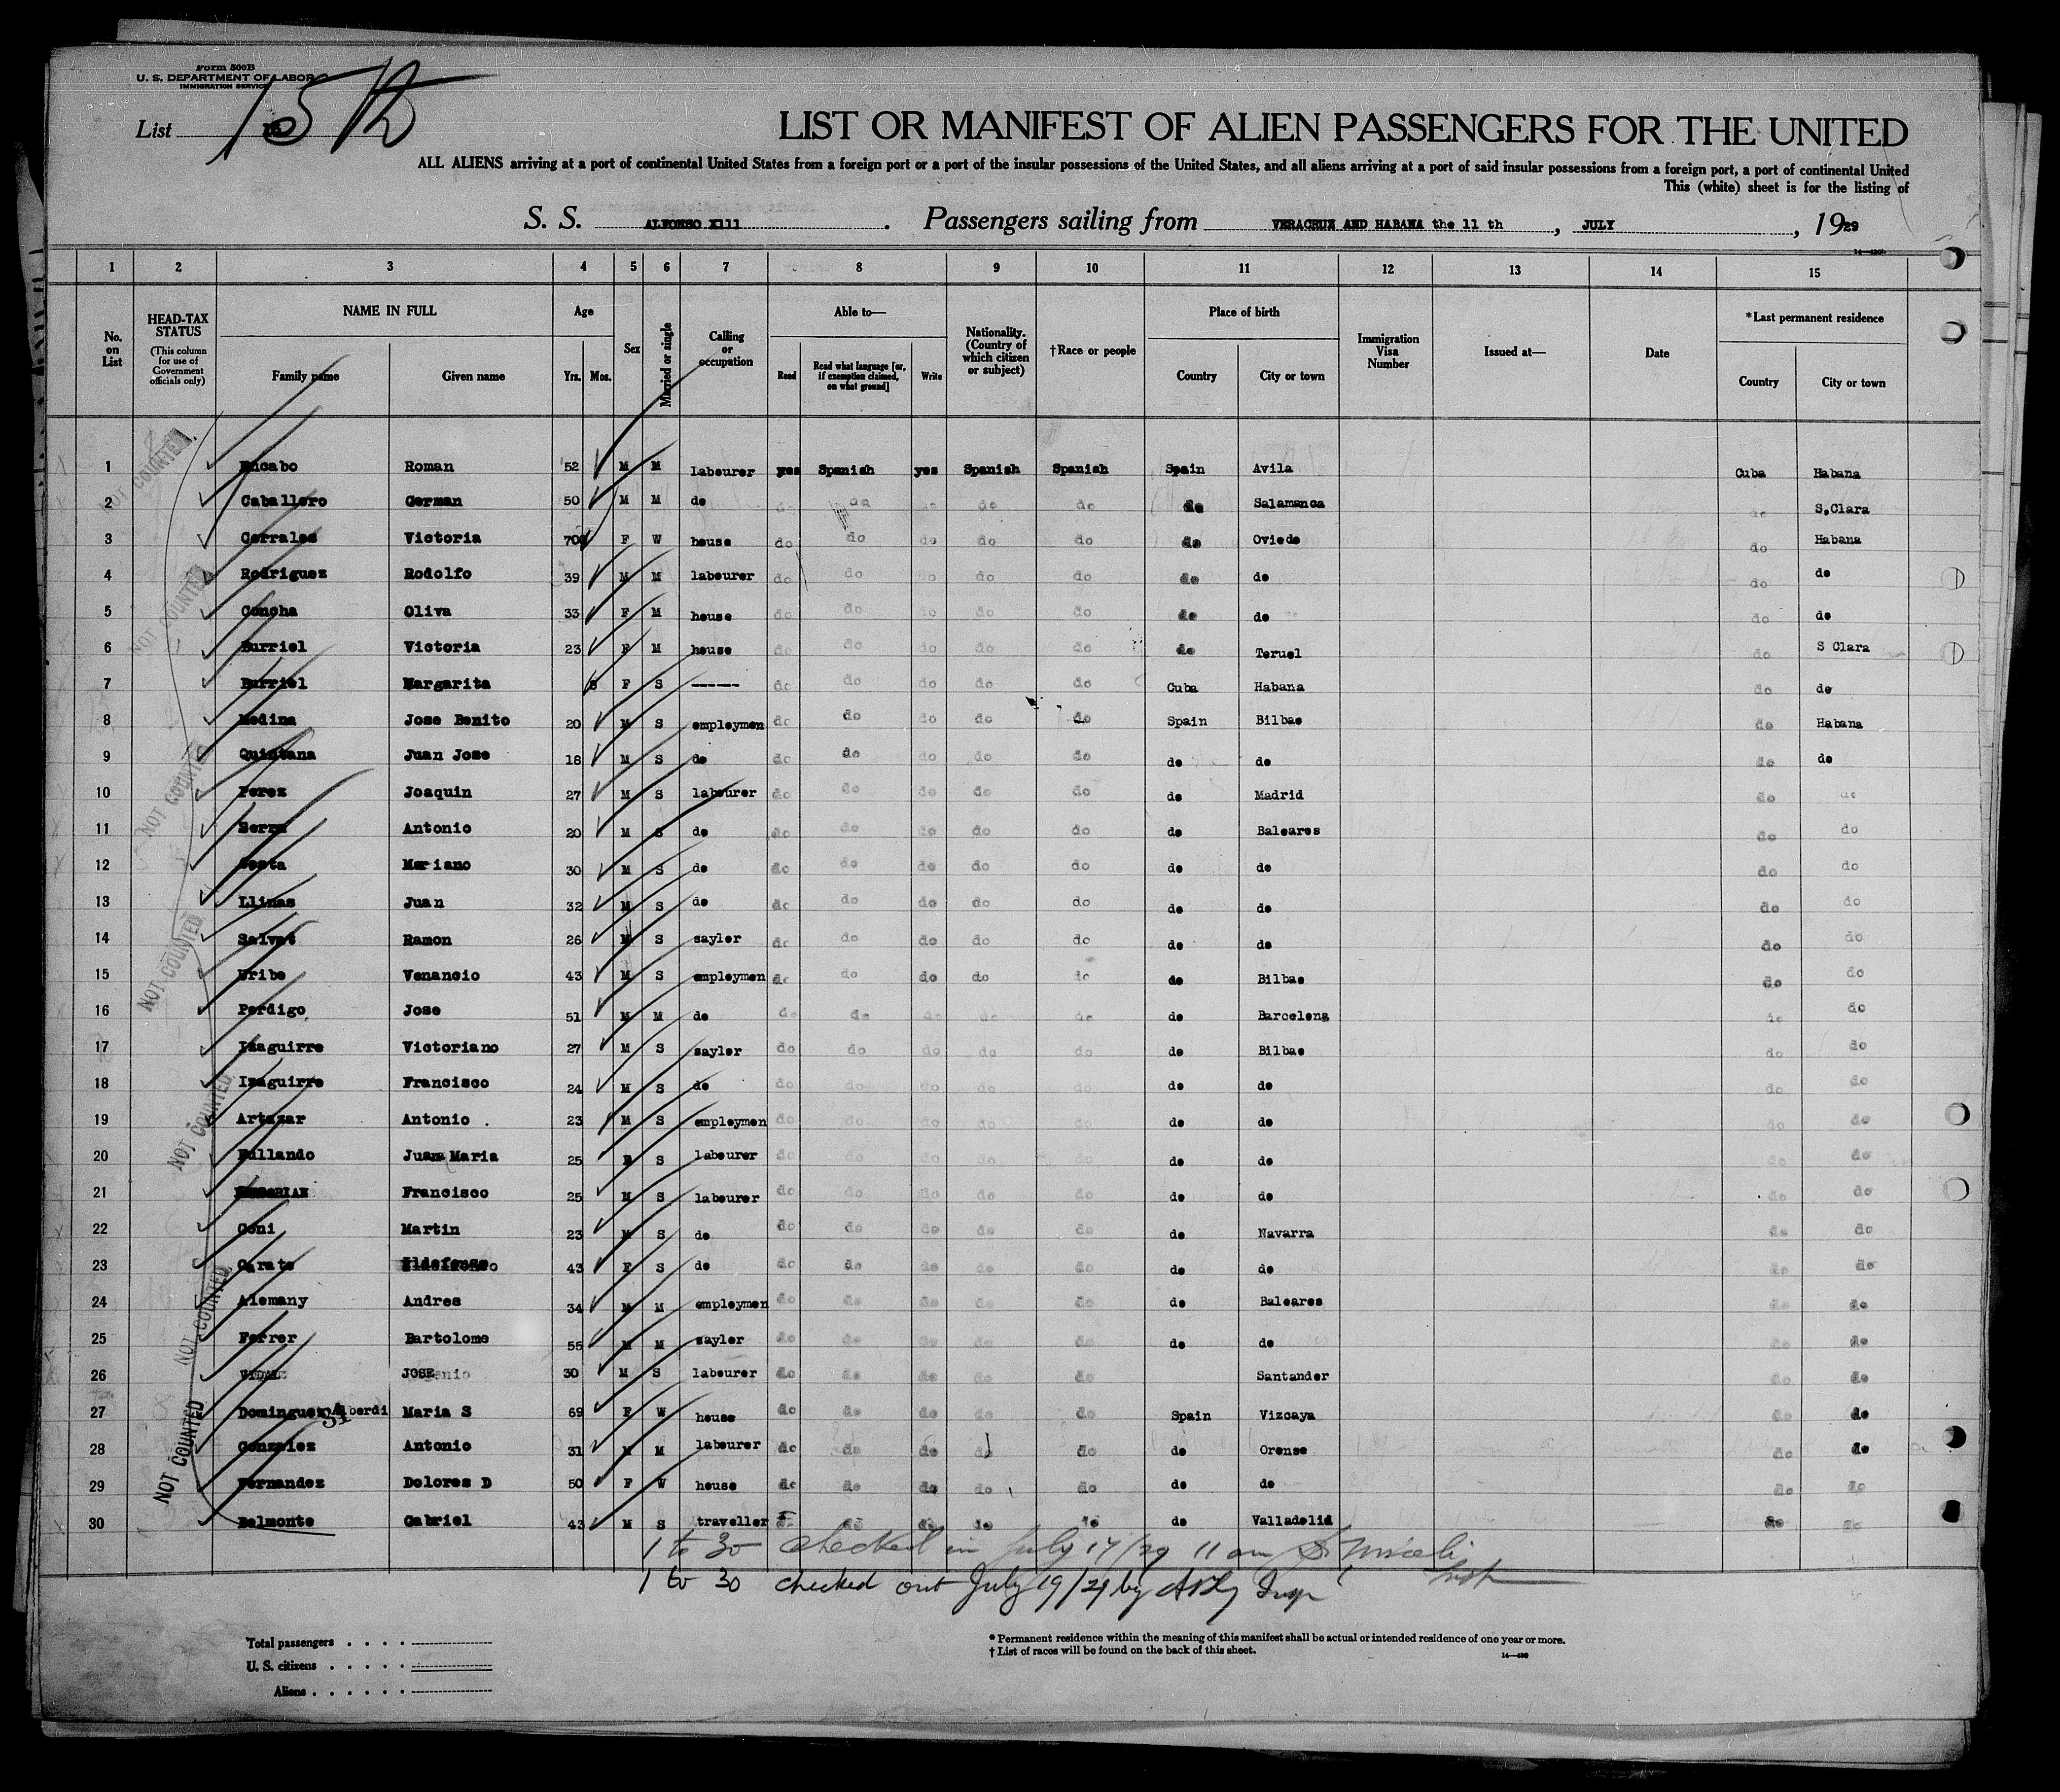 Form 500B
U. S. DEPARTMENT OF LABOR
IMMIGRATION SERVICE
List 15
LIST OR MANIFEST OF ALIEN PASSENGERS FOR THE UNITED
ALL ALIENS arriving at a port of continental United States from a foreign port or a port of the insular possessions of the United States, and all aliens arriving at a port of said insular possessions from a foreign port, a port of continental United
This (white) sheet is for the listing of
S. S. ALFONSO X111. Passengers sailing from VERACRUZ AND HABANA the 11 th, JULY, 1929
1 2 3 4 5 6 7 8 9 10 11 12 13 14 15
No. on List HEAD-TAX STATUS (This column for use of Government officials only) NAME IN FULL Family name Given name Age Yrs. Mos. Sex Married or single Calling or occupation Able to— Read Read what language [or, if exemption claimed, on what ground] Write Nationality. (Country of which citizen or subject) †Race or people Place of birth Country City or town Immigration Visa Number Issued at— Date *Last permanent residence Country City or town
1 Roman 52 M M Labourer yes Spanish yes Spanish Spanish Spain Avila Cuba Habana
2 Caballero German 50 M M do do do do do do do Salamanca do S,Clara
3 Corrales Victoria 70 F W house do do do do do do Oviedo do Habana
4 Rodriguez Rodolfo 39 M M labourer do do do do do do do do do
5 Concha Oliva 33 F M house do do do do do do do do do
6 Burriel Victoria 23 F M house do do do do do do Teruel do S Clara
7 Burriel Margarita F S ------ do do do do do Cuba Habana do do
8 Medina Jose Benito 20 M S employmen do do do do do Spain Bilbao do Habana
9 Quintana Juan Jose 18 M S do do do do do do do do do do
10 Perez Joaquin 27 M S labourer do do do do do do Madrid do do
11 Serra Antonio 20 M S do do do do do do do Baleares do do
12 Costa Mariano 30 M S do do do do do do do do do do
13 Llinas Juan 32 M S do do do do do do do do do do
14 Salvat Ramon 26 M S sayler do do do do do do do do do
15 Uribe Venancio 43 M S employmen do do do do do do Bilbao do do
16 Perdigo Jose 51 M M do do do do do do do Barcelona do do
17 Izaguirre Victoriano 27 M S sayler do do do do do do Bilbao do do
18 Izaguirre Francisco 24 M S do do do do do do do do do do
19 Artazar Antonio 23 M S employmen do do do do do do do do do
20 Juana Maria 25 S labourer do do do do do do do do do
21 Francisco 25 M S labourer do do do do do do do do do
22 Goni Martin 23 M S do do do do do do do Navarra do do
23 Ildefonso 43 F S do do do do do do do do do do
24 Alemany Andres 34 M M employmen do do do do do do Baleares do do
25 Ferrer Bartolome 55 M M sayler do do do do do do do do do
26 VIDAL JOSE 30 M S labourer do do do do do Santander do do
27 Dominguez Alberdi Maria S 69 F W house do do do do do Spain Vizcaya do do
28 Gonzalez Antonio 31 M M labourer do do do do do do Orense do do
29 Fernandez Dolores D 50 F W house do do do do do do do do do
30 Belmonte Gabriel 43 M S traveller do do do do do do Valladolid do do
NOT COUNTED
NOT COUNTED
NOT COUNTED
NOT COUNTED
NOT COUNTED
NOT COUNTED
NOT COUNTED
1 to 30 checked in July 17/29 11 am
1 to 30 checked out July 19/29 by Insp
Total passengers
U. S. citizens
Aliens
* Permanent residence within the meaning of this manifest shall be actual or intended residence of one year or more.
† List of races will be found on the back of this sheet.
14—430